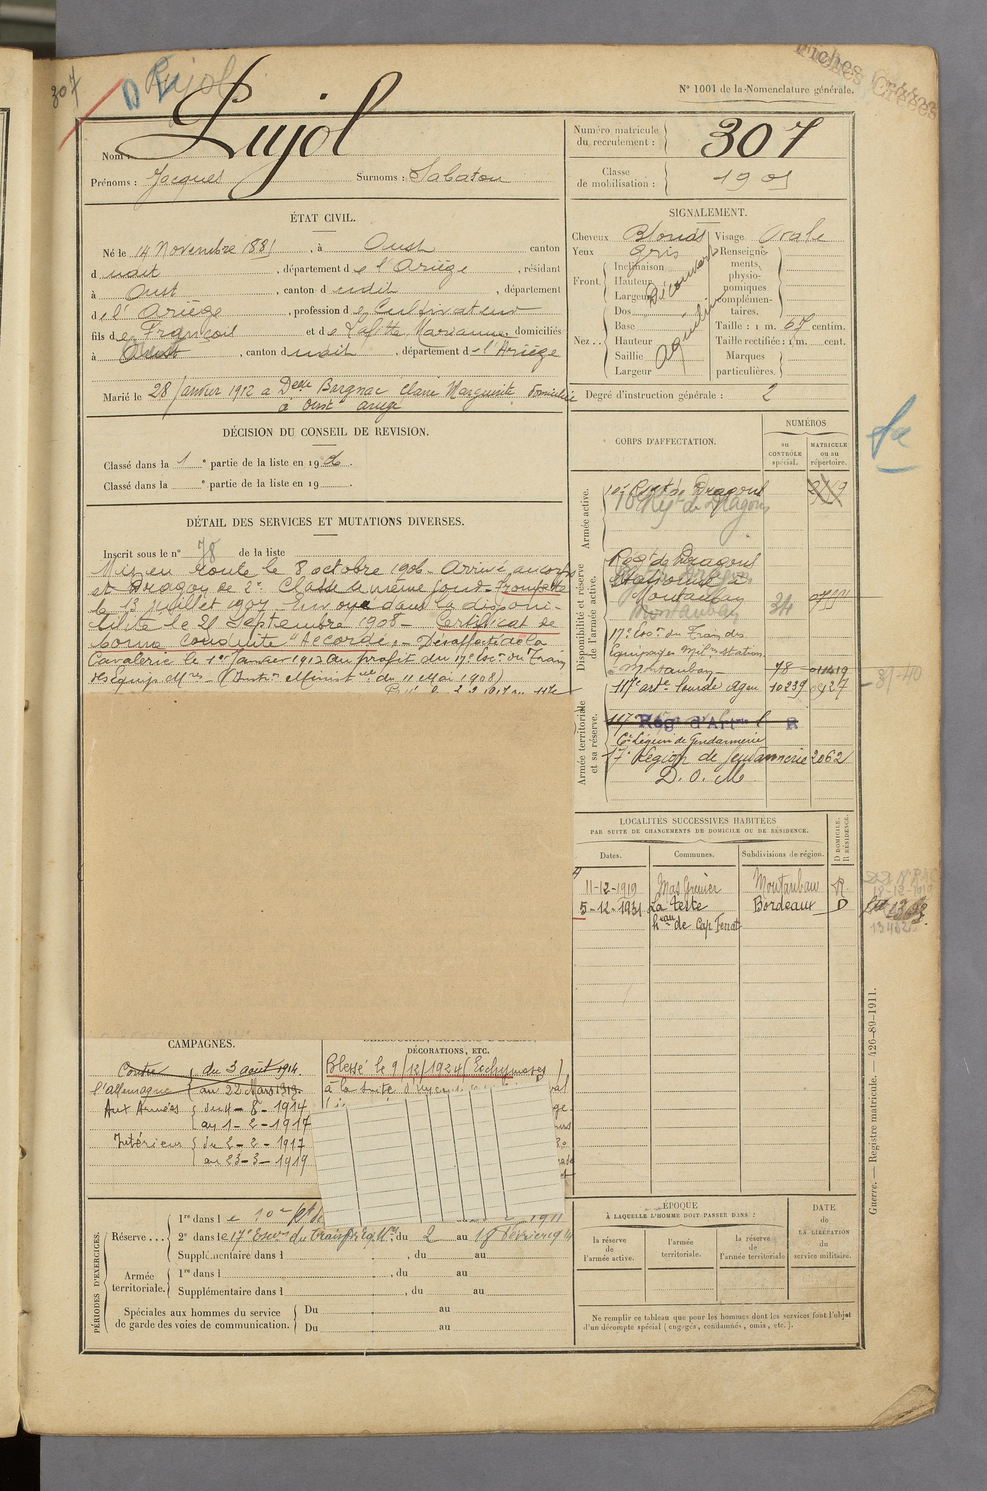 307
D Pujol
N° 1001 de la Nomenclature générale.
Nom : Pujol
Prénoms : Jacques Surnoms : Sabatou
Numéro matricule du recrutement : 307
Classe de mobilisation : 1901
ÉTAT CIVIL.
Né le 14 Novembre 1881, à Oust canton
d udit, département de l'Ariège, résidant
à Oust, canton d udit, département
de l'Ariège, profession de Cultivateur
fils de François et de Lafitte Marianne domiciliés
à Oust, canton dudit, département de l'Ariège
Marié le 28 Janvier 1912 a Delle Bargnac Claire Marguerite domicilié
à Oust ariège
SIGNALEMENT.
Cheveux Blonds
Yeux gris
Front. Inclinaison
Hauteur
Largeur
Découvert
Nez.. Dos
Base
Hauteur
Saillie
Largeur
Aquilin
Visage Ovale
Renseignements physionomiques complémentaires.
Taille : 1 m. 67 centim.
Taille rectifiée : 1 m. cent.
Marques particulières.
Degré d'instruction générale : 2
DÉCISION DU CONSEIL DE REVISION.
Classé dans la 1 e partie de la liste en 190
Classé dans la e partie de la liste en 19
DÉTAIL DES SERVICES ET MUTATIONS DIVERSES.
Inscrit sous le n° 78 de la liste
Mis en route le 8 octobre 1906. Arrivé au corps
et Dragon de 2e Classe le même jour. Trompette
le 13 juillet 1907. Envoyé dans la disponi-
bilité le 21 Septembre 1908. Certificat de
bonne conduite "Accordé". Désaffecté de la
Cavalerie le 1er Janvier 1912 au profit du 17e Esc. du Train
des Equip. Mres (Instr. Minist. lle du 11 Mai 1908)
CORPS D'AFFECTATION.
NUMÉROS
au CONTRÔLE spécial.
MATRICULE ou au répertoire.
Armée active.
10e Régt de Dragons
Disponibilité et réserve de l'armée active.
Régt de Dragons
Stationné à
Montauban 34
17e Esc. du Train des
Equipages Mil. res station
à Montauban 78
117e arte lourde Agen 10239
Armée territoriale et sa réserve.
Rég. d'Art
Cie Légion de Gendarmerie
17e Légion de Gendarmerie 2062
D. O. M
LOCALITÉS SUCCESSIVES HABITÉES
PAR SUITE DE CHANGEMENTS DE DOMICILE OU DE RÉSIDENCE.
Dates. Communes. Subdivisions de région. D DOMICILE. R RÉSIDENCE.
11-12-1919 Mas Grenier Montauban R
5-12-1931 La Teste Bordeaux D
de Cap Ferrat
CAMPAGNES.
Contre du 3 août 1914
l'allemagne au 22 Mars 1919
Aux Armées du 4-8-1914
au 1-2-1917
Intérieur du 2-2-1917
au 23-3-1919
DÉCORATIONS, ETC.
Blessé le 9/12/1924 (Ecchymoses)
à la suite
PÉRIODES D'EXERCICES.
Réserve... 1re dans le 10e Rt de 1911
2e dans le 17e Escon du Train des Eq. Mres du 2 au 18 Février 1914
Supplémentaire dans l , du au
Armée territoriale. 1re dans l , du au
Supplémentaire dans l , du au
Spéciales aux hommes du service de garde des voies de communication. Du au
Du au
ÉPOQUE
À LAQUELLE L'HOMME DOIT PASSER DANS :
la réserve de l'armée active.
l'armée territoriale.
la réserve de l'armée territoriale
DATE de LA LIBÉRATION du service militaire.
Ne remplir ce tableau que pour les hommes dont les services font l'objet
d'un décompte spécial (engagés, condamnés, omis, etc.).
Guerre. — Registre matricule. — 426-89-1911.